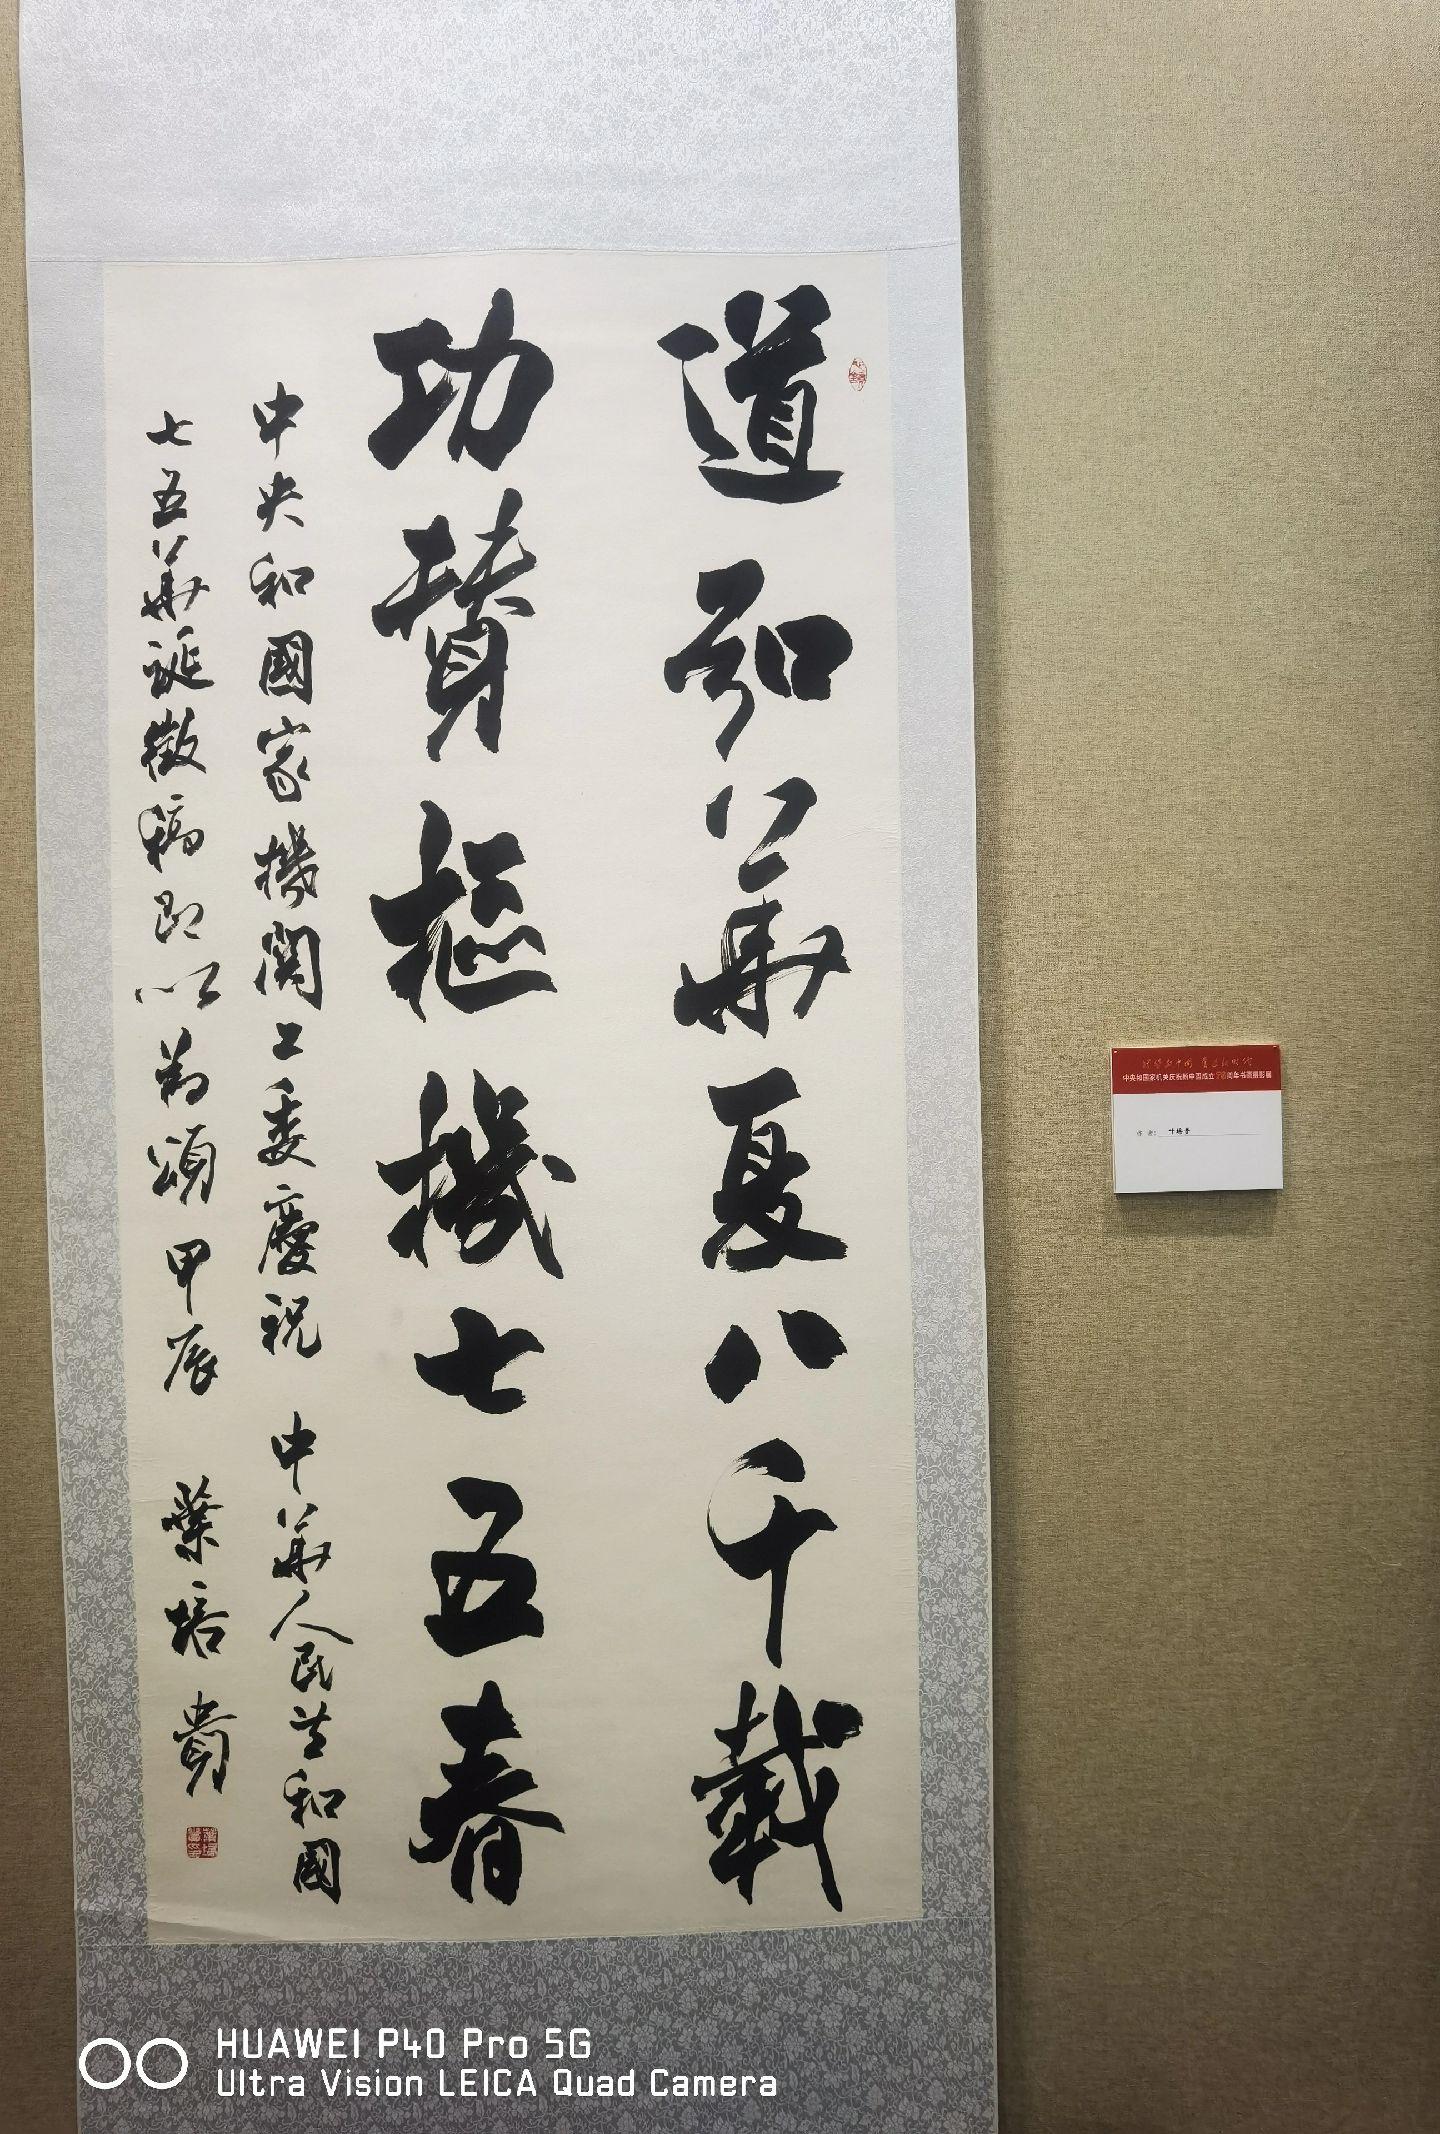 道弘華夏八千載
功贊樞機七五春
中央和國家機関工委慶祝 中華人民共和國
七五華誕徵稿即以為頌 甲辰 葉培貴
中央和国家机关庆祝新中国成立75周年书画摄影展
作者: 叶培贵
HUAWEI P40 Pro 5G
Ultra Vision LEICA Quad Camera